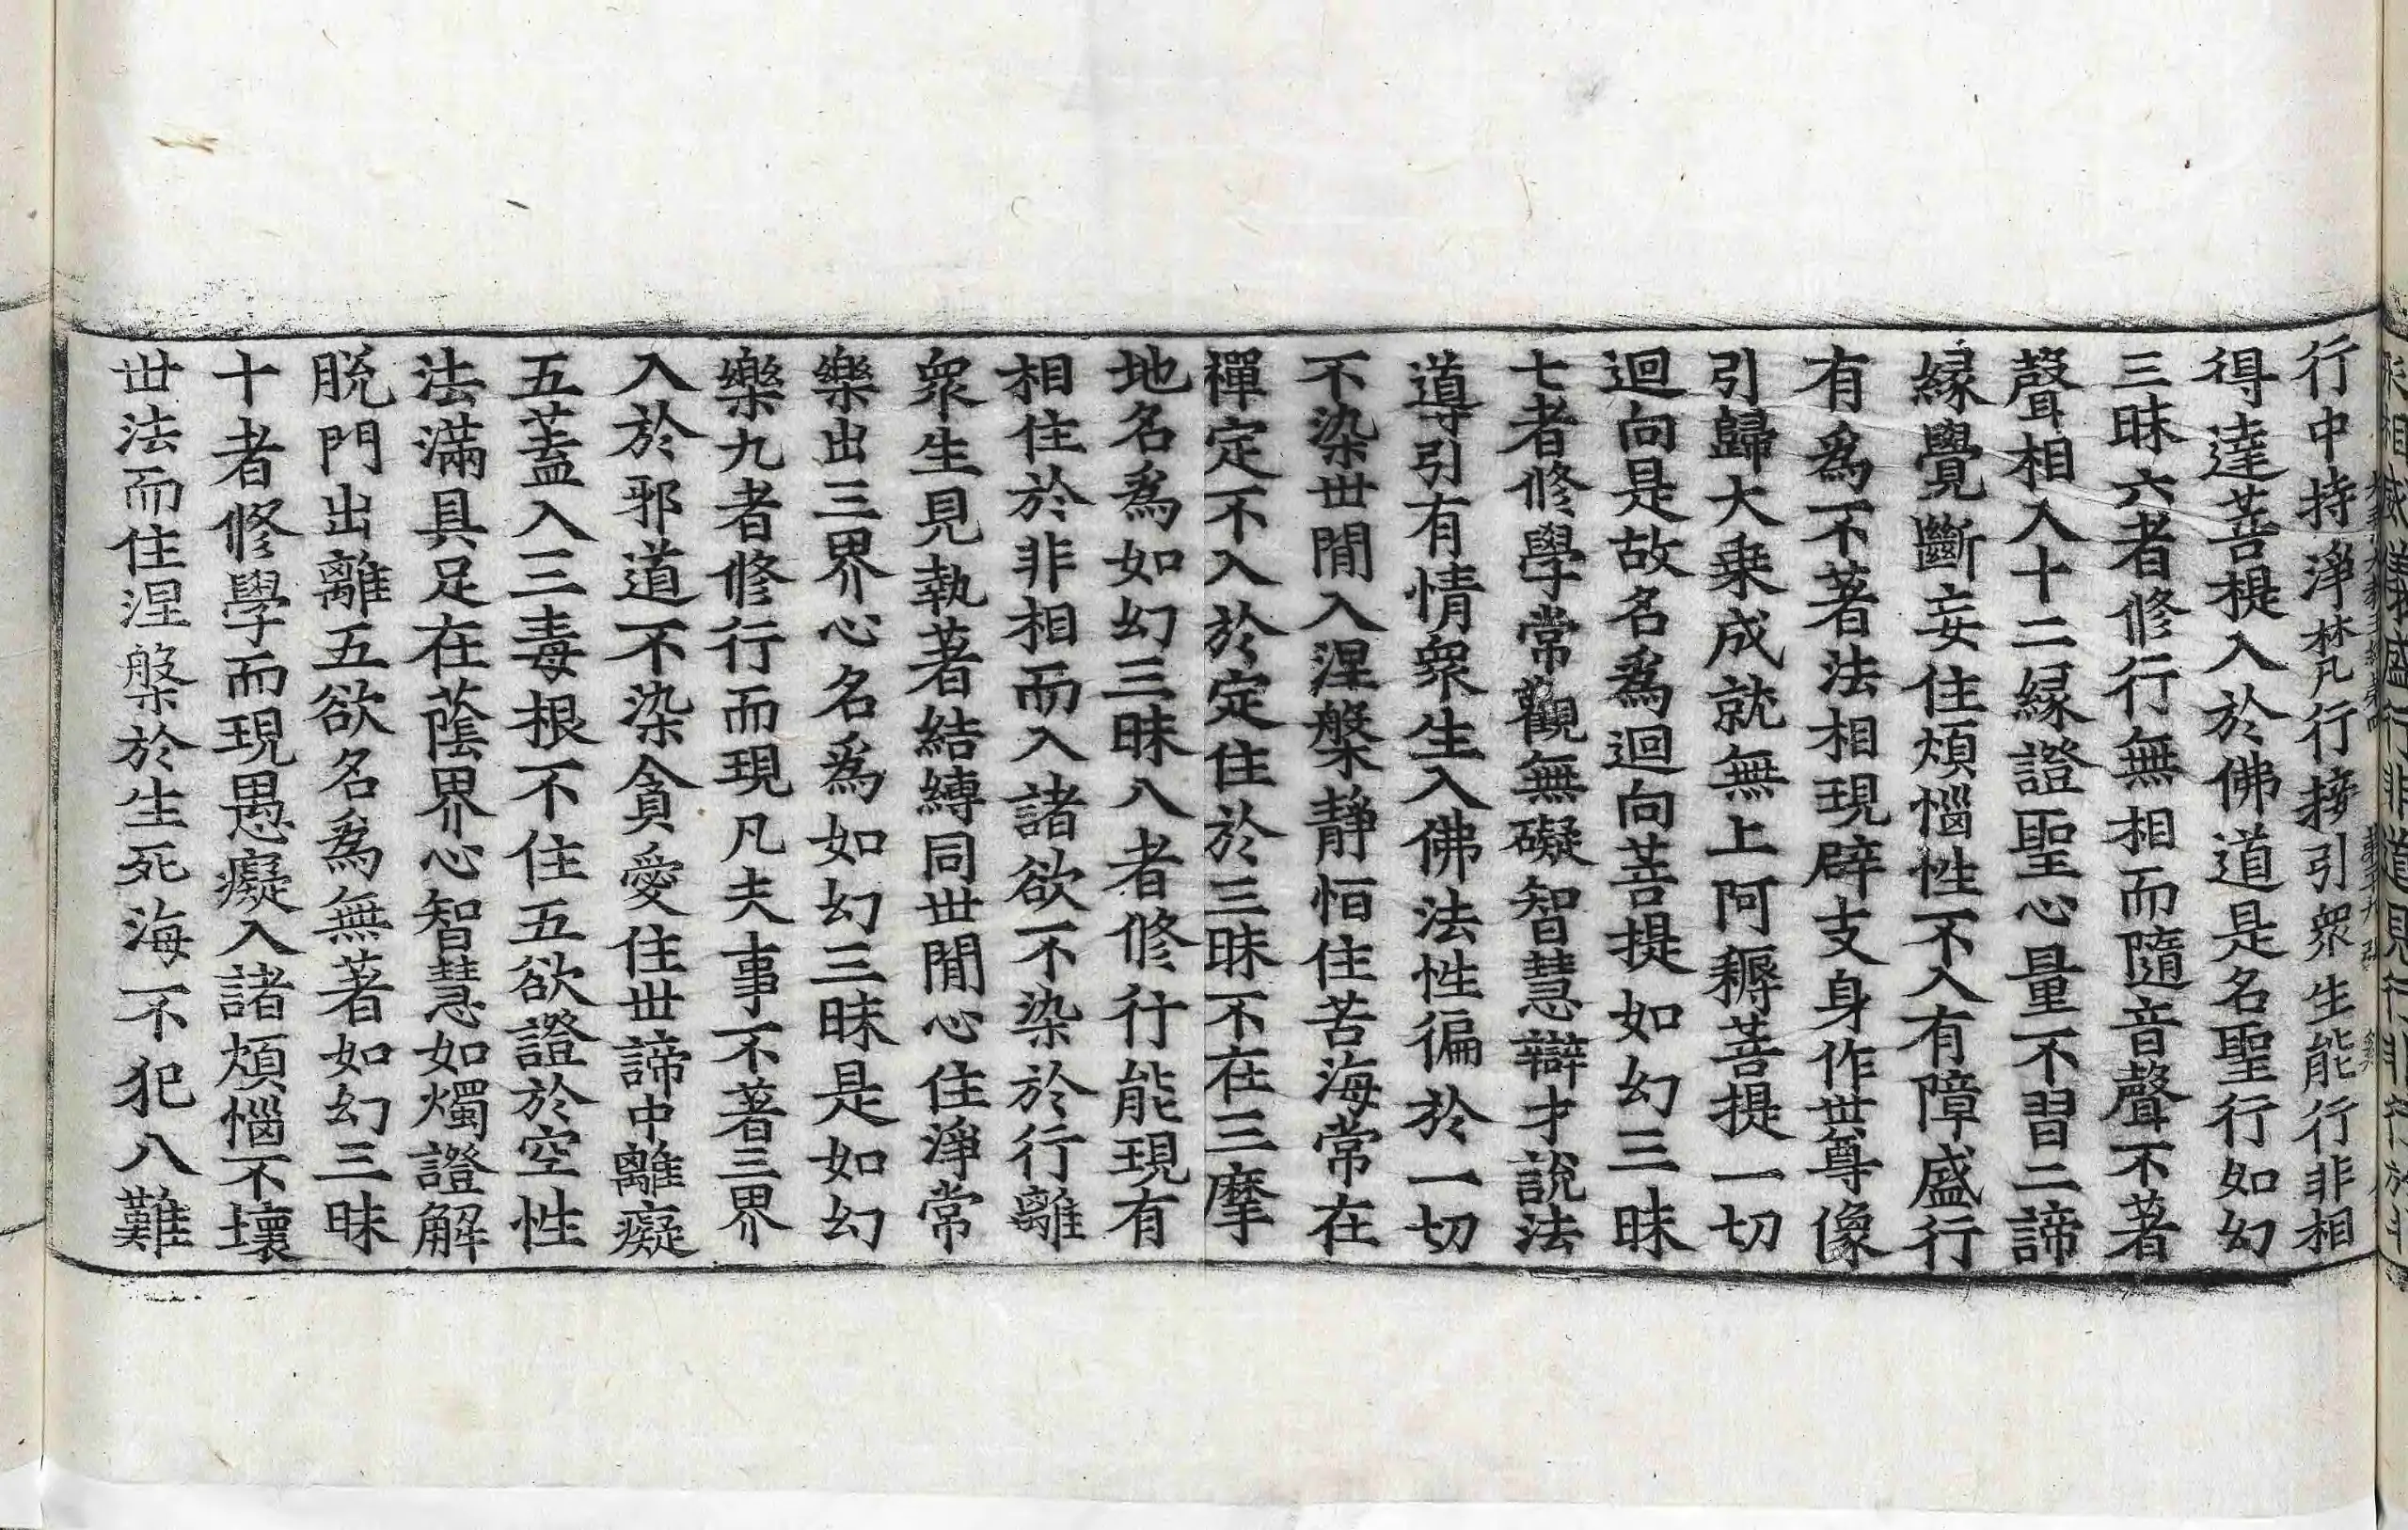 行中持淨梵凡行接引衆生能行非相
得達菩提入於佛道是名聖行如幻
三昧六者修行無相而隨音聲不著
聲相入十二縁證聖心量不習二諦
縁覺斷妄住煩惱性不入有障盛行
有爲不著法相現辟支身作世尊像
引歸大乗成就無上阿耨菩提一切
迴向是故名爲迴向菩提如幻三昧
七者修學常觀無礙智慧辯才說法
導引有情衆生入佛法性徧於一切
不染世間入涅槃靜恒住苦海常在
禪定不入於定住於三昧不在三摩
地名爲如幻三昧八者修行能現有
相住於非相而入諸欲不染於行離
衆生見執著結縛同世間心住淨常
樂出三界心名爲如幻三昧是如幻
樂九者修行而現凡夫事不著三界
入於邪道不染貪愛住世諦中離癡
五蓋入三毒根不住五欲證於空性
法滿具足在蔭界心智慧如燭證解
脫門出離五欲名爲無著如幻三昧
十者修學而現愚癡入諸煩惱不壞
世法而住涅槃於生死海不犯八難